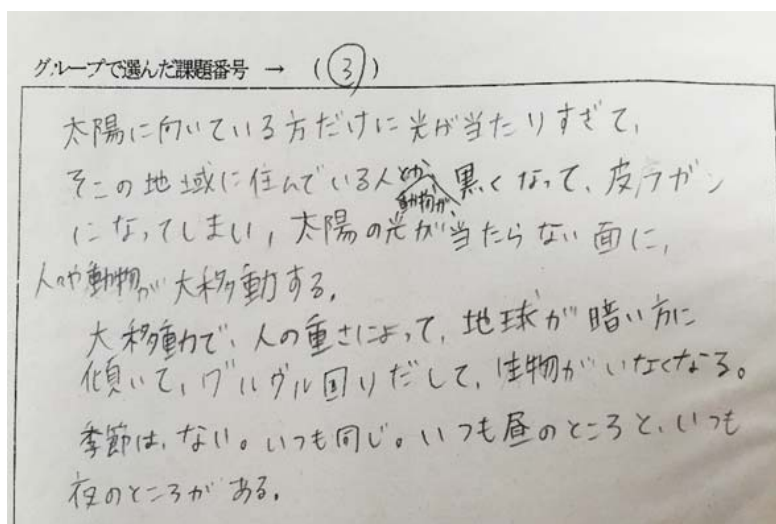 グループで選んだ課題番号 → (③)
太陽に向いている方だけに光が当たりすぎて、
そこの地域に住んでいる人とか動物が、黒くなって、皮フガン
になってしまい、太陽の光が当たらない面に、
人々や動物が大移動する。
大移動で、人の重さによって、地球が暗い方に
傾いて、グルグル回りだして、生物がいなくなる。
季節は、ない。いつも同じ。いつも昼のところと、いつも
夜のところがある。